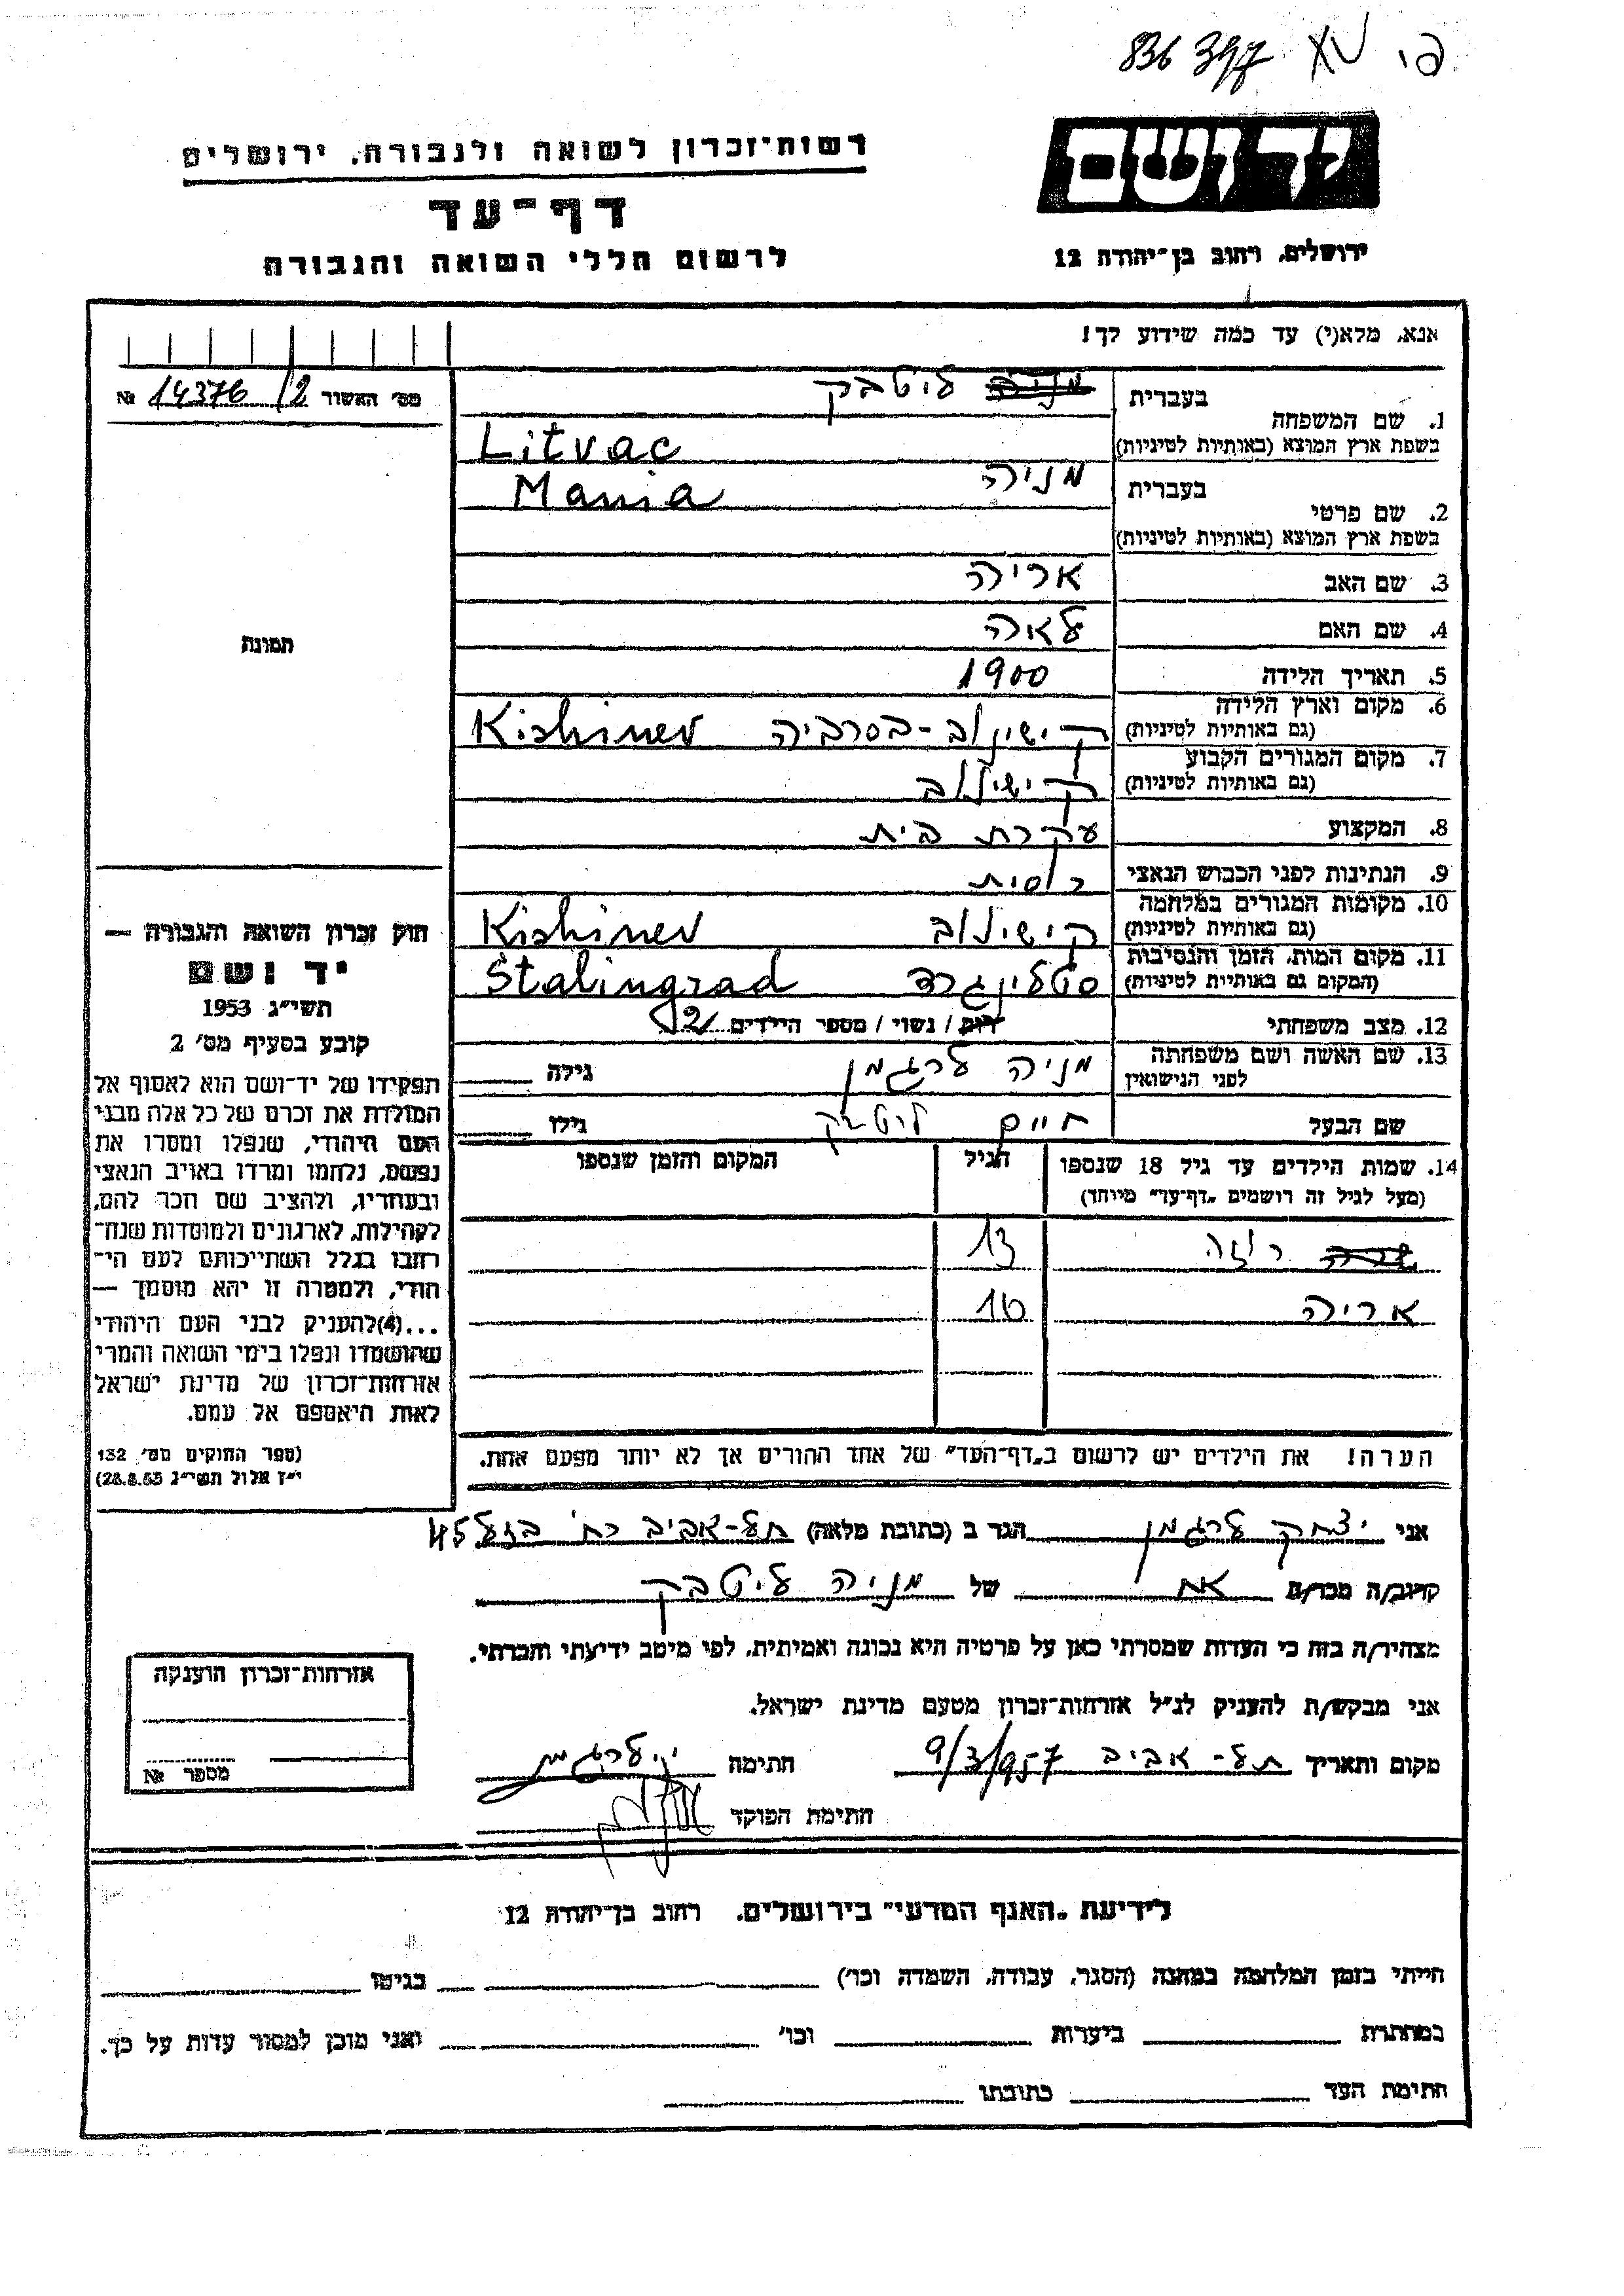 פי XV 836 397
יד ושם
ירושלים, רחוב בן־יהודה 12
רשות־זכרון לשואה ולגבורה, ירושלים
דף־עד
לרשום חללי השואה והגבורה
אנא, מלא(י) עד כמה שידוע לך!
מס׳ האשור 14376/2 №
1. שם המשפחה
בעברית ליטבק
בשפת ארץ המוצא (באותיות לטיניות) Litvac
2. שם פרטי
בעברית מניה
בשפת ארץ המוצא (באותיות לטיניות) Mania
3. שם האב אריה
4. שם האם לאה
5. תאריך הלידה 1900
6. מקום וארץ הלידה קישינוב - בסרביה Kishinev
(גם באותיות לטיניות)
7. מקום המגורים הקבוע קישינוב
(גם באותיות לטיניות)
8. המקצוע עקרת בית
9. הנתינות לפני הכבוש הנאצי רוסית
10. מקומות המגורים במלחמה קישינוב Kishinev
(גם באותיות לטיניות)
11. מקום המות, הזמן והנסיבות סטלינגרד Stalingrad
(המקום גם באותיות לטיניות)
12. מצב משפחתי רווק / נשוי / מספר הילדים 2
13. שם האשה ושם משפחתה מניה לרגמן גילה
לפני הנישואין
שם הבעל חיים ליטבק גילו
14. שמות הילדים עד גיל 18 שנספו הגיל המקום והזמן שנספו
(מעל לגיל זה רושמים „דף־עד״ מיוחד)
רוזה 13
אריה 10
הערה! את הילדים יש לרשום ב„דף־העד״ של אחד ההורים אך לא יותר מפעם אחת.
תמונת
חוק זכרון השואה והגבורה —
יד ושם
תשי״ג 1953
קובע בסעיף מס׳ 2
תפקידו של יד־ושם הוא לאסוף אל
המולדת את זכרם של כל אלה מבני
העם היהודי, שנפלו ומסרו את
נפשם, נלחמו ומרדו באויב הנאצי
ובעוזריו, ולהציב שם וזכר להם,
לקהילות, לארגונים ולמוסדות שנח־
רבו בגלל השתייכותם לעם הי־
הודי, ולמטרה זו יהא מוסמך —
...(4)להעניק לבני העם היהודי
שהושמדו ונפלו בימי השואה והמרי
אזרחות־זכרון של מדינת ישראל
לאות היאספם אל עמם.
(ספר החוקים מס׳ 132
י״ז אלול תשי״ג 28.8.53)
אני יצחק לרגמן הגר ב (כתובת מלאה) תל-אביב רח׳ בזל 45
קרוב/ה מכר/ה אח של מניה ליטבק
מצהיר/ה בזה כי העדות שמסרתי כאן על פרטיה היא נכונה ואמיתית, לפי מיטב ידיעתי והכרתי.
אני מבקש/ת להעניק לנ״ל אזרחות־זכרון מטעם מדינת ישראל.
מקום ותאריך תל-אביב 9/3/957 חתימה י. לרגמן
חתימת הפוקד
אזרחות־זכרון הוענקה
מספר №
לידיעת „האגף המדעי״ בירושלים, רחוב בן־יהודה 12
הייתי בזמן המלחמה במחנה (הסגר, עבודה, השמדה וכו׳) בגיטו
במחתרת ביערות וכו׳ ואני מוכן למסור עדות על כך.
חתימת העד כתובתו